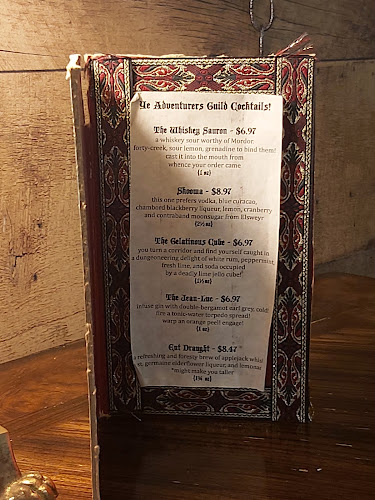 Ye Adventurers Guild Cocktails!
The Whiskey Sauron - $6.97
a whiskey sour worthy of Mordor
forty-creek, sour lemon, grenadine to bind them!
cast it into the mouth from
whence your order came
(1 oz)
Skooma - $8.97
this one prefers vodka, blue curacao,
chambord blackberry liqueur, lemon, cranberry
and contraband moonsugar from Elsweyr
The Gelatinous Cube - $6.97
you turn a corridor and find yourself caught in
a dungeoneering delight of white rum, peppermint,
fresh lime, and soda occupied
by a deadly lime jello cube!
The Jean-Luc - $6.97
infuse gin with double-bergamot earl grey, cold
fire a tonic-water torpedo spread!
warp an orange peel! engage!
(1 oz)
Ent Draught - $8.47
a refreshing and foresty brew of applejack whisky
st. germaine elderflower liqueur, and lemonade
*might make you taller